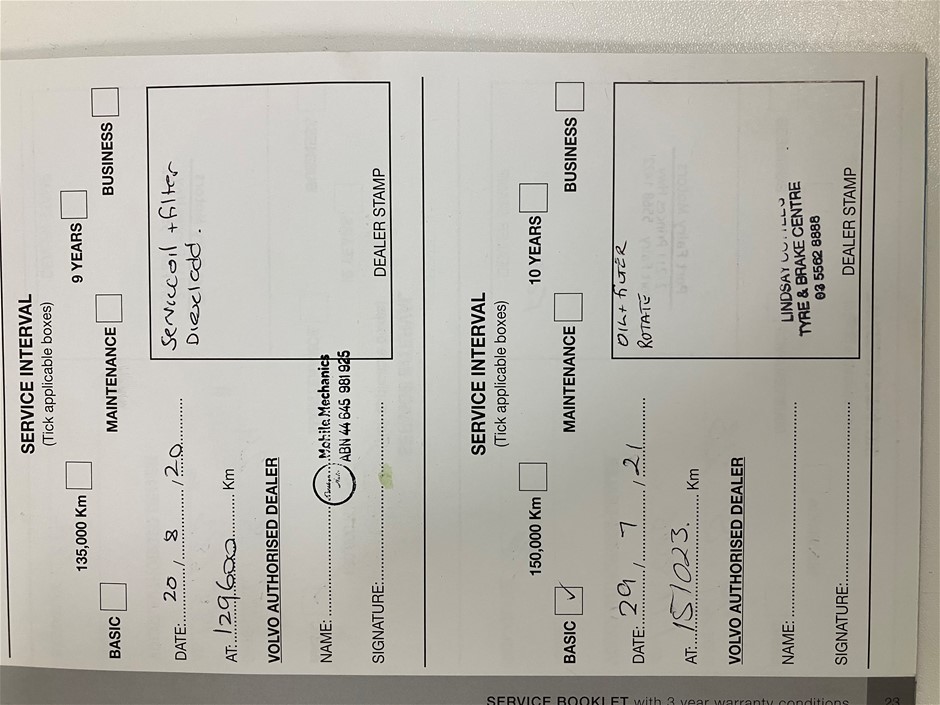 SERVICE INTERVAL
(Tick applicable boxes)
135,000 Km 9 YEARS
BASIC MAINTENANCE BUSINESS
DATE: 20 / 8 / 20
AT: 129600 Km
VOLVO AUTHORISED DEALER
NAME:
Mobile Mechanics
ABN 44 645 981 925
SIGNATURE:
oil + filter
DEALER STAMP
SERVICE INTERVAL
(Tick applicable boxes)
150,000 Km 10 YEARS
BASIC MAINTENANCE BUSINESS
DATE: 29 / 7 / 21
AT: 151023 Km
VOLVO AUTHORISED DEALER
NAME:
SIGNATURE:
OIL + FILTER
ROTATE
LINDSAY
TYRE & BRAKE CENTRE
03 5562 8888
DEALER STAMP
SERVICE BOOKLET with 3 year warranty conditions 23